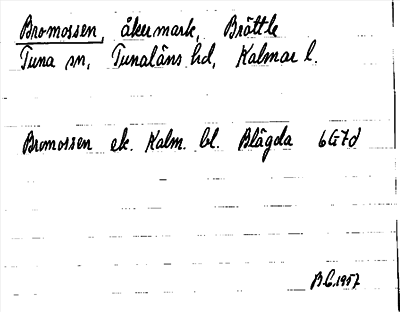 Bromossen, åkermark, Bråttle
Tuna sn, Tunaläns hd, Kalmar l.
Bromossen ek. Kalm. bl. Blägda 6G7d
B.C. 1957